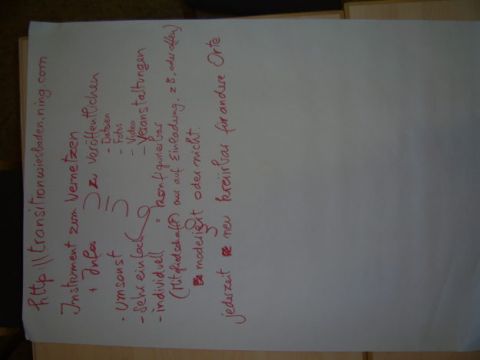 http://transitionwiesbaden.ning.com
Instrument zum Vernetzen
+ Infos zu veröffentlichen
- Dateien
- Fotos
- Video
- Veranstaltungen
- Umsonst
- Sehr einfach
- individuell konfigurierbar
(Mitgliedschaft nur auf Einladung, z.B. oder offen)
moderiert oder nicht.
jederzeit neu kreiirbar für andere Orte